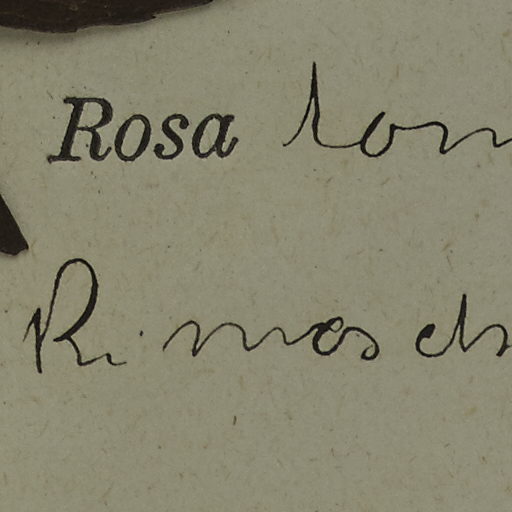 Rosa tom
R. mosch